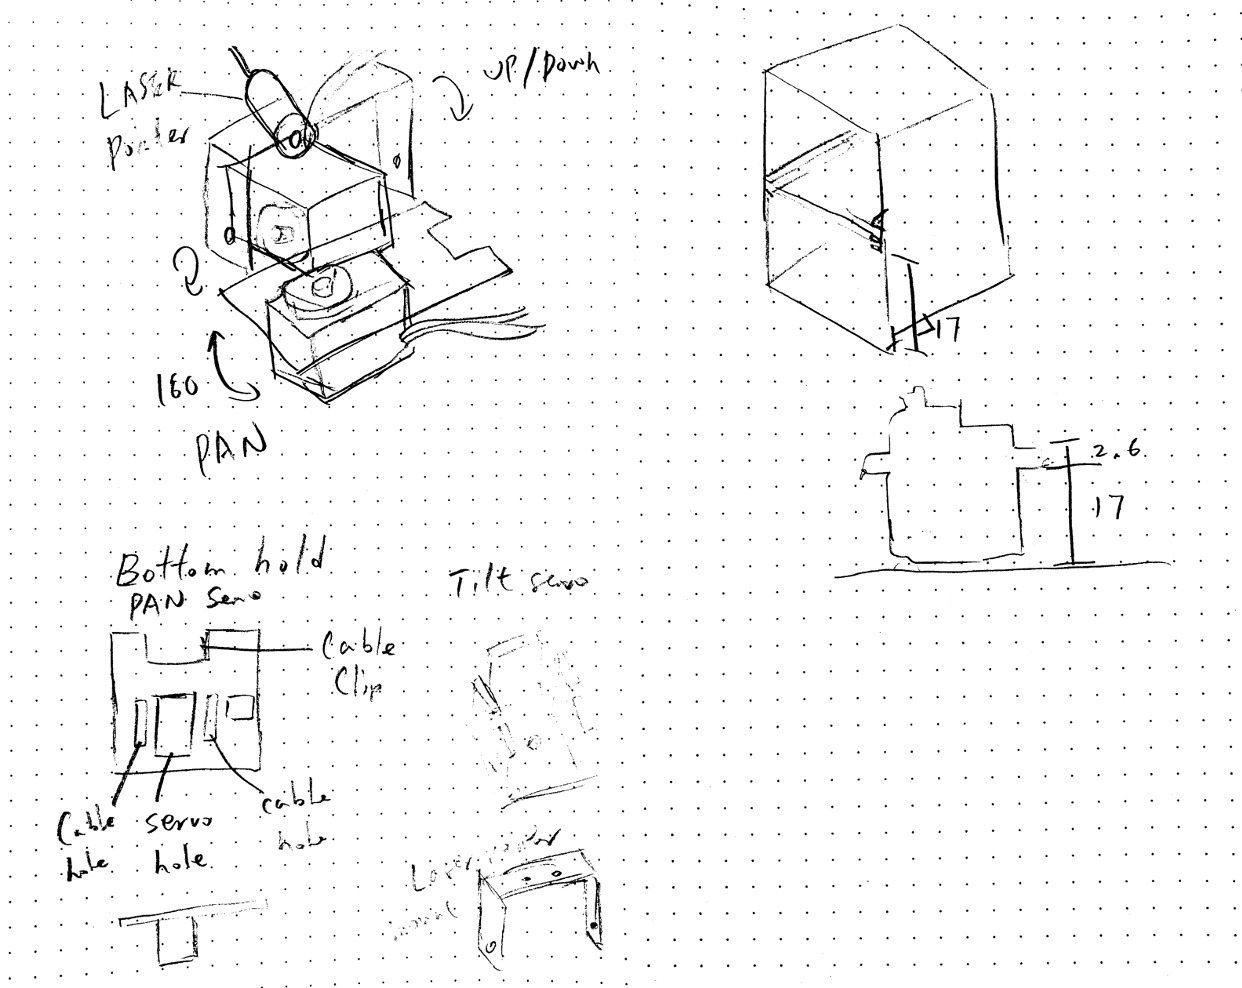 LASER
Pointer
UP/Down
160
PAN
17
2.6
17
Bottom hold
PAN Servo
Cable
Clip
Cable
hole
servo
hole
cable
hole
Tilt servo
Laser